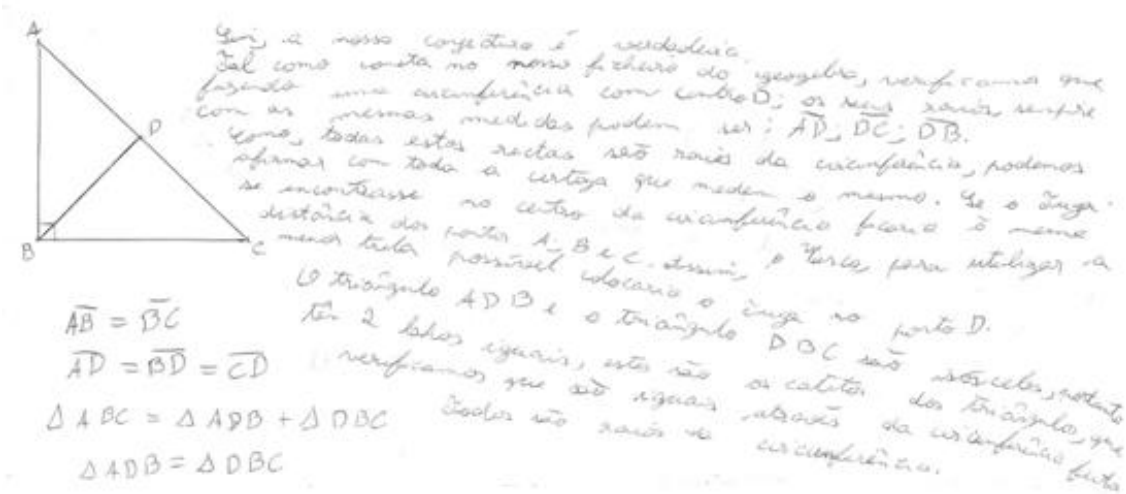 A
D
B
C
Sim, a nossa conjectura é verdadeira.
Tal como consta no nosso ficheiro do geogebra, verificamos que
fazendo uma circunferência com centro D; os seus raios, sempre
com as mesmas medidas podem ser: AD; DC; DB.
Como, todas estas rectas são raios da circunferência, podemos
afirmar com toda a certeza que medem o mesmo. Se o
se encontrasse no centro da circunferência ficaria à mesma
distância dos pontos A; B e C. Assim, o para utilizar a
menor possível colocaria o no ponto D.
O triângulo ADB e o triângulo DBC são isósceles, portanto
têm 2 lados iguais, estes são os catetos dos triângulos, que
verificamos que são iguais através da circunferência feita
todos são raios da circunferência.
AB = BC
AD = BD = CD
Δ ABC = Δ ADB + Δ DBC
Δ ADB = Δ DBC